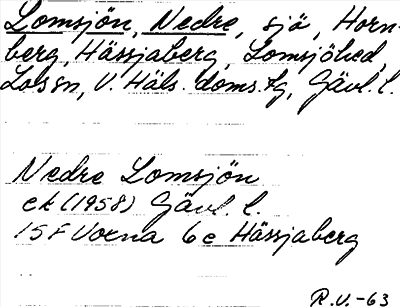 Lomsjön, Nedre, sjö, Horn-
berg, Hässjaberg, Lomsjöhed,
Lossn, V. Häls. doms.tg, Gävl. l.
Nedre Lomsjön
ek (1958) Gävl. l.
15 F Voxna 6e Hässjaberg
R.U.-63